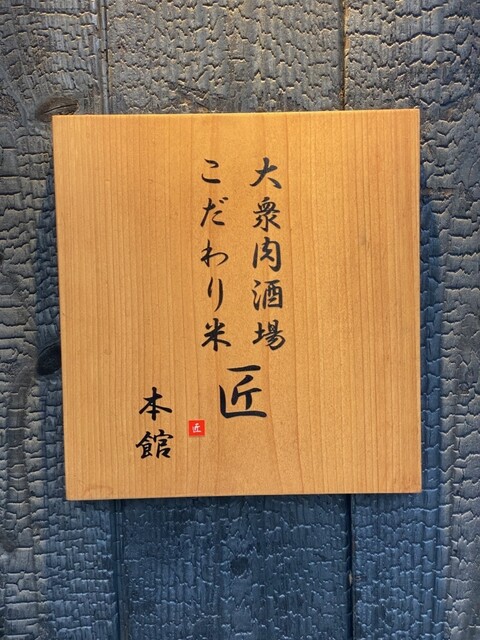 大衆肉酒場
こだわり米
匠
本館
匠